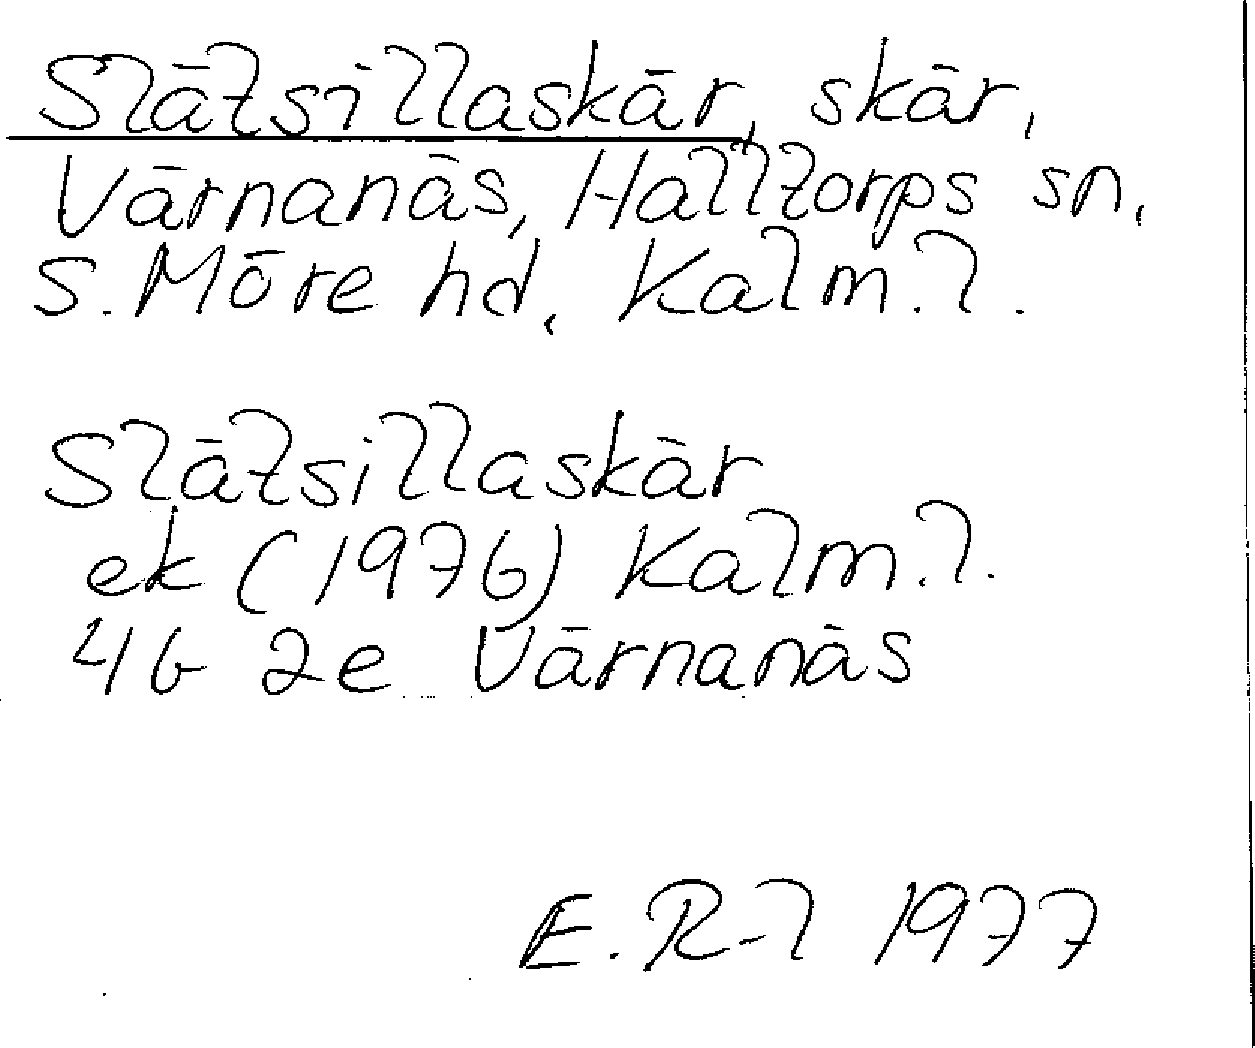 Slätsillaskär, skär,
Värnanäs, Halltorps sn,
S. Möre hd, Kalm. l.
Slätsillaskär
ek (1976) Kalm. l.
4G 2e Värnanäs
E. R-l 1977